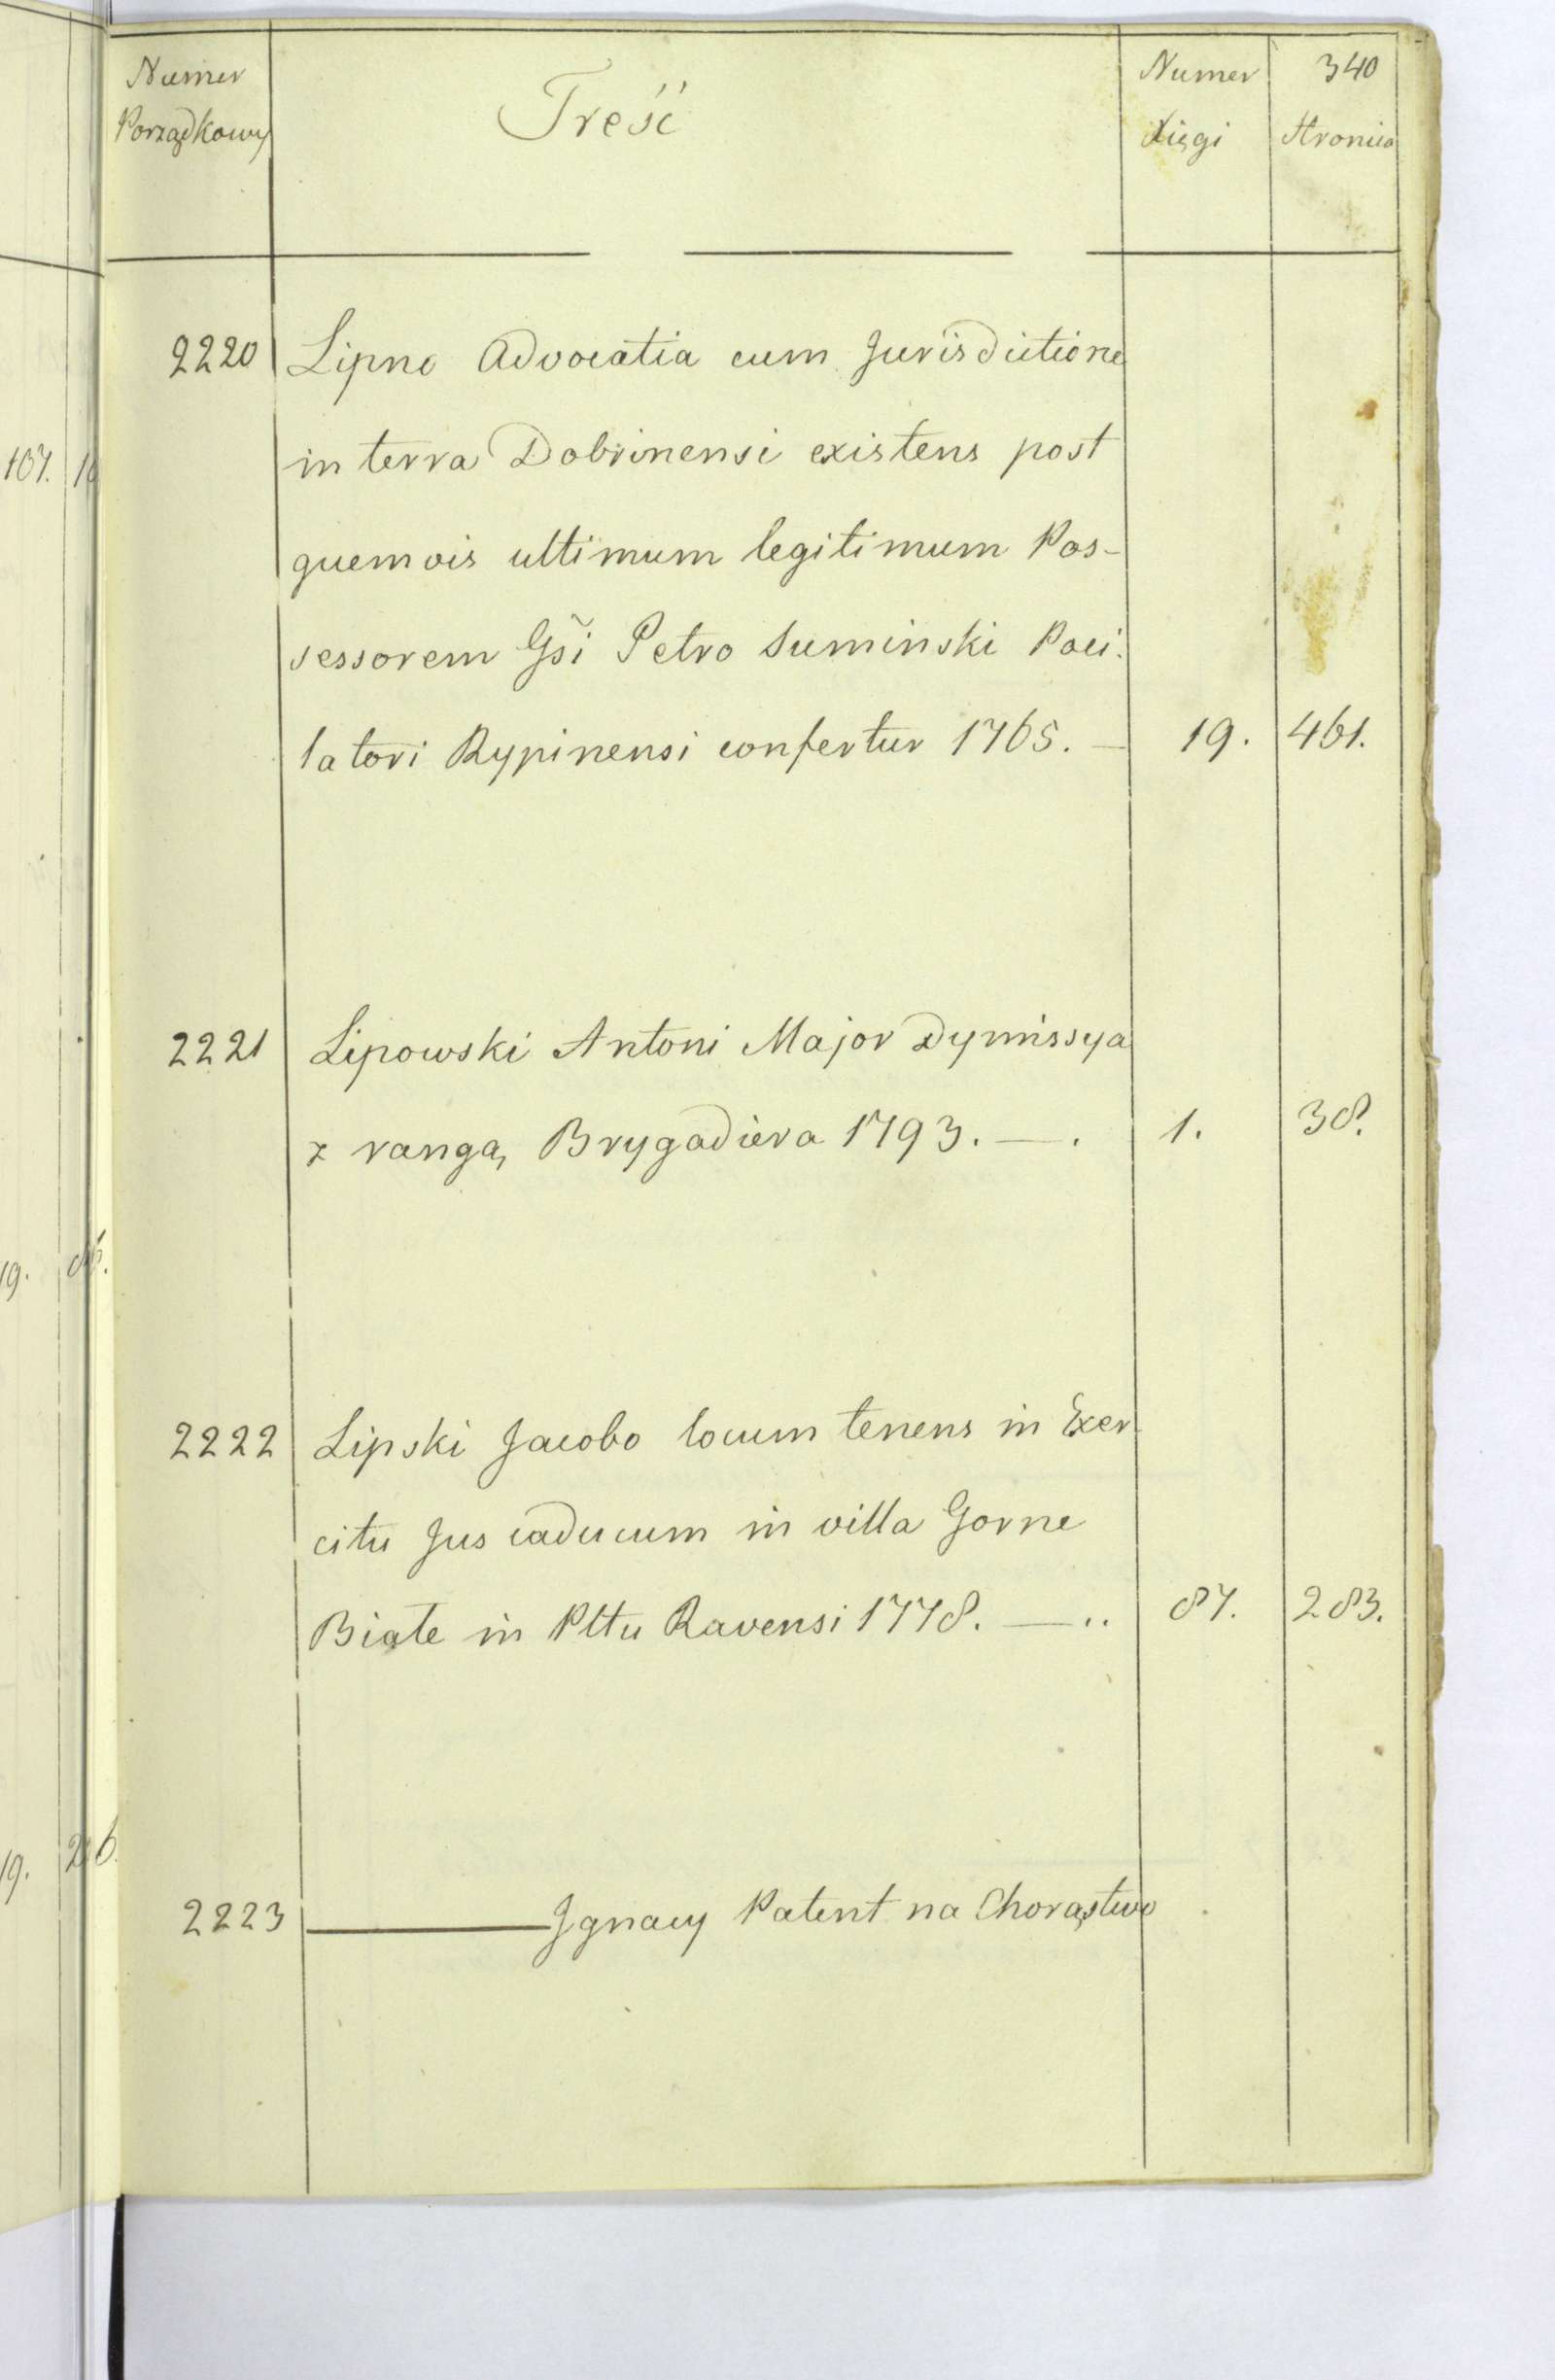 340
Numer Porządkowy
Treść
Numer Xięgi
Stronica
2220 Lipno Advocatia cum Jurisdictione
in terra Dobrinensi existens post
quemvis ultimum legitimum Pos-
sessorem Gsi Petro Suminski Poci:
latori Rypinensi confertur 1765. — 19. 461.
2221 Lipowski Antoni Major Dymissya
z rangą Brygadiera 1793. — . 1. 38.
2222 Lipski Jacobo locum tenens in Exer
citu Jus caducum in villa Gorne
Biate in Pltu Ravensi 1778. — .. 87. 283.
2223 ——— Jgnacy Patent na Chorąstwo
107.
19.
19.